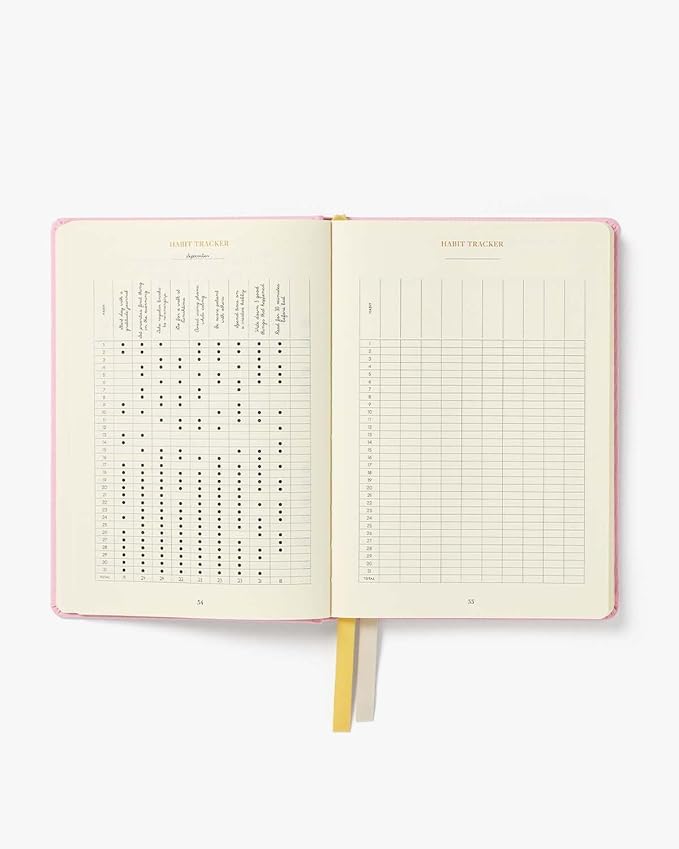 HABIT TRACKER
September
HABIT
Start day with a
gratitude journal
first thing
in the morning
Take regular breaks
Go for a walk at
lunchtime
Avoid using phone
while eating
Be more patient
with others
Spend time on
a creative hobby
Note down 3 good
things that happened
Read for 30 minutes
before bed
1
2
3
4
5
6
7
8
9
10
11
12
13
14
15
16
17
18
19
20
21
22
23
24
25
26
27
28
29
30
31
TOTAL
54
HABIT TRACKER
HABIT
1
2
3
4
5
6
7
8
9
10
11
12
13
14
15
16
17
18
19
20
21
22
23
24
25
26
27
28
29
30
31
TOTAL
55